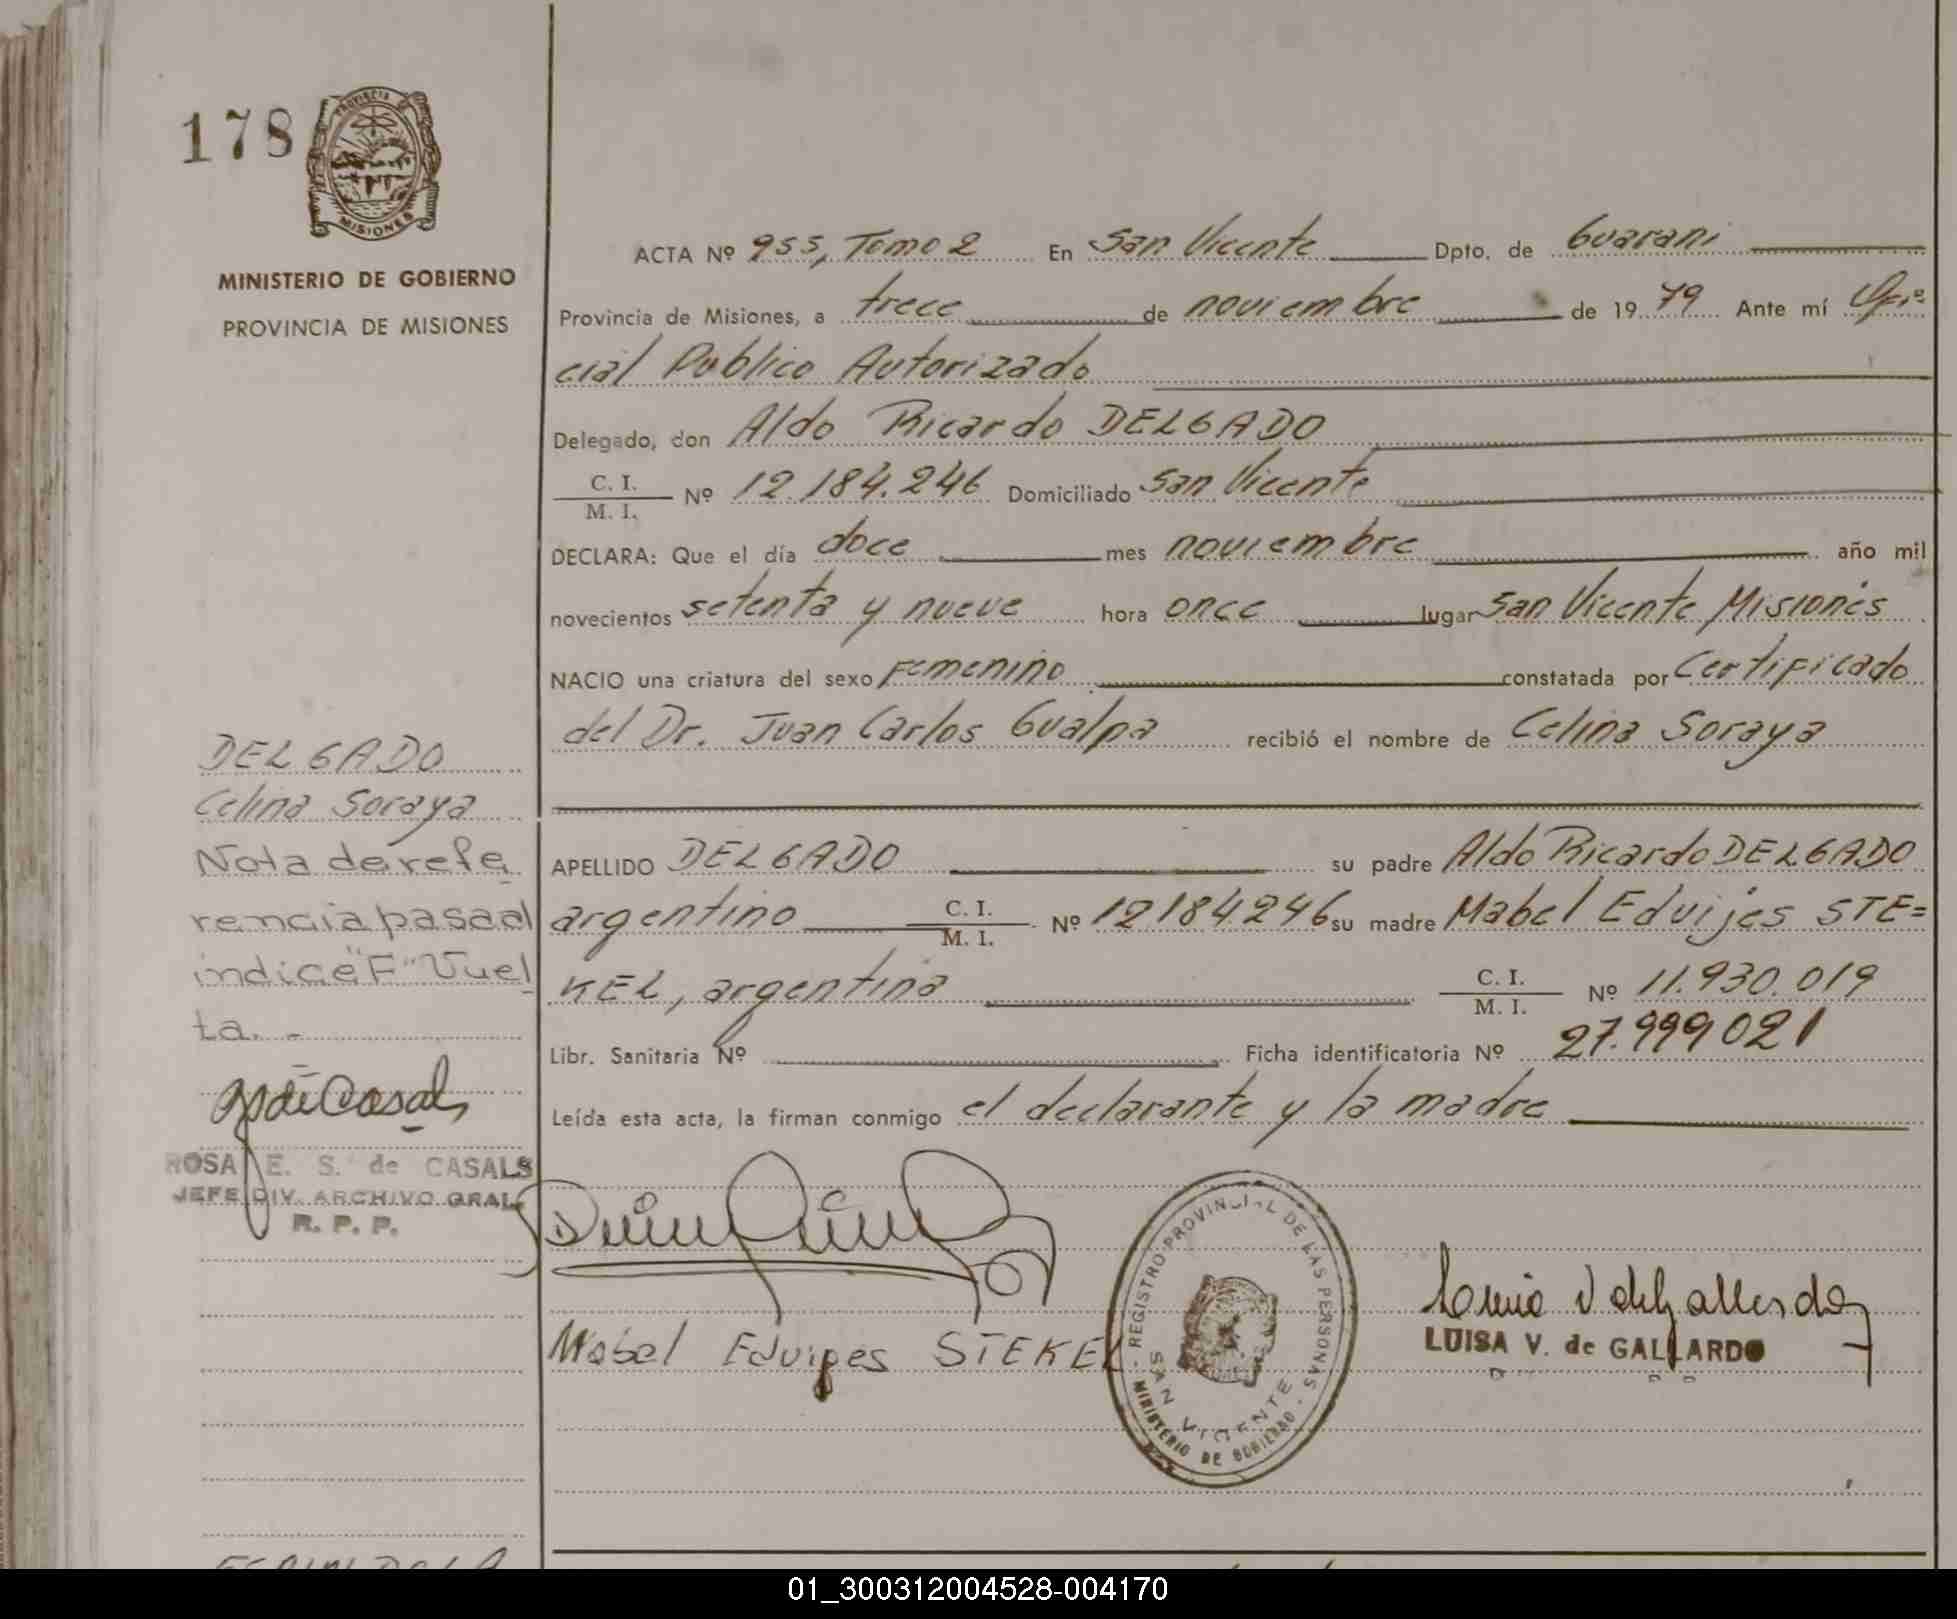 178
PROVINCIA
MISIONES
MINISTERIO DE GOBIERNO
PROVINCIA DE MISIONES
ACTA Nº 955, Tomo 2 En San Vicente Dpto. de Guarani
Provincia de Misiones, a trece de noviembre de 1979 Ante mí Ofi=
cial Publico Autorizado
Delegado, don Aldo Ricardo DELGADO
C. I.
M. I. Nº 12.184.246 Domiciliado San Vicente
DECLARA: Que el día doce mes noviembre año mil
novecientos setenta y nueve hora once lugar San Vicente Misiones
NACIO una criatura del sexo Femenino constatada por Certificado
del Dr. Juan Carlos Gualpa recibió el nombre de Celina Soraya
DELGADO
Celina Soraya
Nota de refe
rencia pasa al
indice "F" Vuel
ta. -
ROSA E. S. de CASALS
JEFE DIV. ARCHIVO GRAL.
R. P. P.
APELLIDO DELGADO su padre Aldo Ricardo DELGADO
argentino C. I.
M. I. Nº 12184.246 su madre Mabel Eduijes STE=
KEL, argentina C. I.
M. I. Nº 11.930.019
Libr. Sanitaria Nº Ficha identificatoria Nº 27.999021
Leída esta acta, la firman conmigo el declarante y la madre
Mabel Eduiges STEKEL
REGISTRO PROVINCIAL DE LAS PERSONAS
SAN VICENTE
MINISTERIO DE GOBIERNO
LUISA V. de GALLARDO
01_300312004528-004170